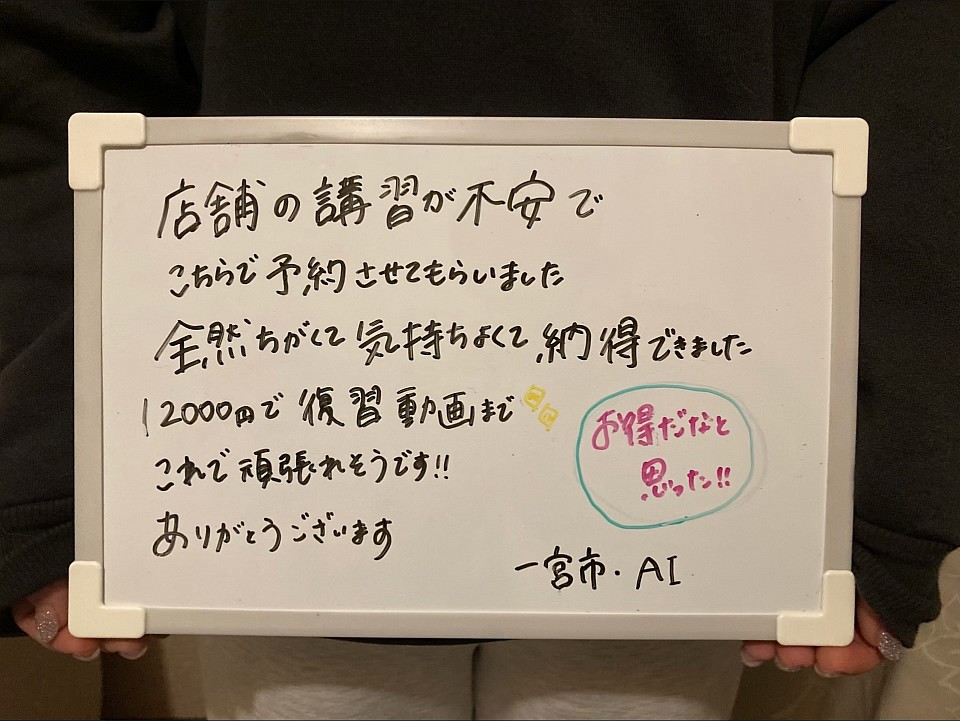 店舗の講習が不安で
こちらで予約させてもらいました
全然ちがくて気持ちよくて納得できました
12000円で復習動画まで
これで頑張れそうです!!
ありがとうございます
お得だなと
思った!!
一宮市・AI